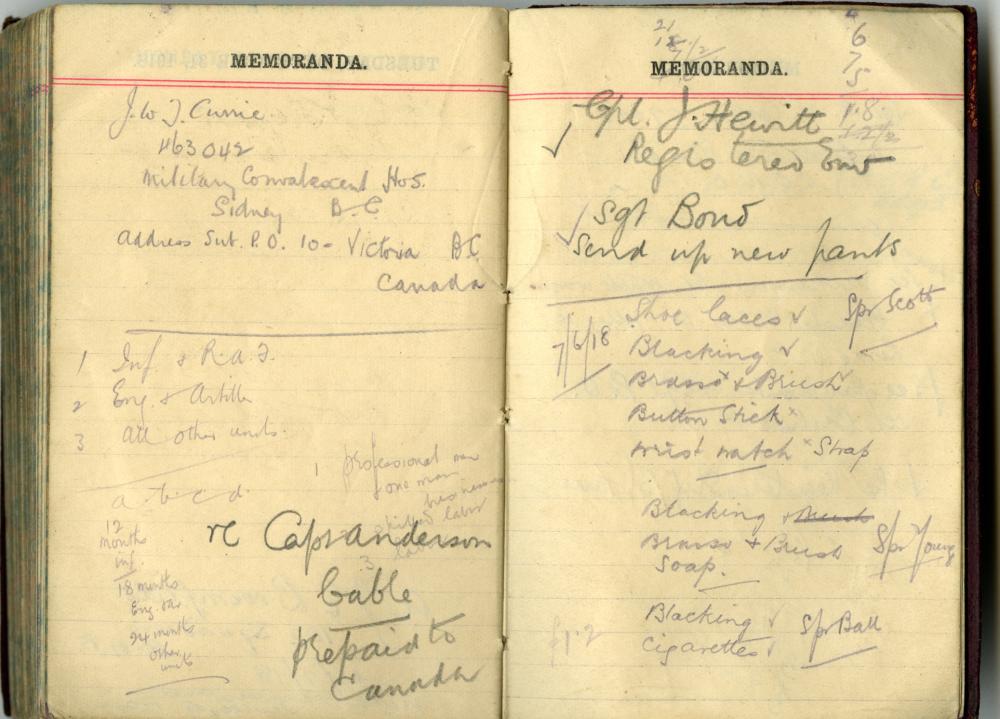 MEMORANDA.
J. W. J. Currie.
463042
Military Convalescent Hos.
Sidney B.C.
Address Sut. P.O. 10 - Victoria B.C.
Canada
1 Inf & R.a.F.
2 Eng. & Artill
3 all other units.
a. b. c. d.
1 professional man
one man
business
skilled labor
3
12
months
inf.
18 months
Eng.
24 months
other
units
re Capt Anderson
Cable
prepaid to
Canada
21
MEMORANDA.
6
7
5
18
Cpl. J. Hewitt
Registered Env
Sgt Bond
Send up new pants
7/6/18
Shoe laces ✓ Spr Scott
Blacking ✓
Brasso & Brush
Button Stick x
Wrist watch x Strap
Blacking
Brasso & Brush Spr Young
Soap.
Blacking ✓ Spr Ball
Cigarettes ✓